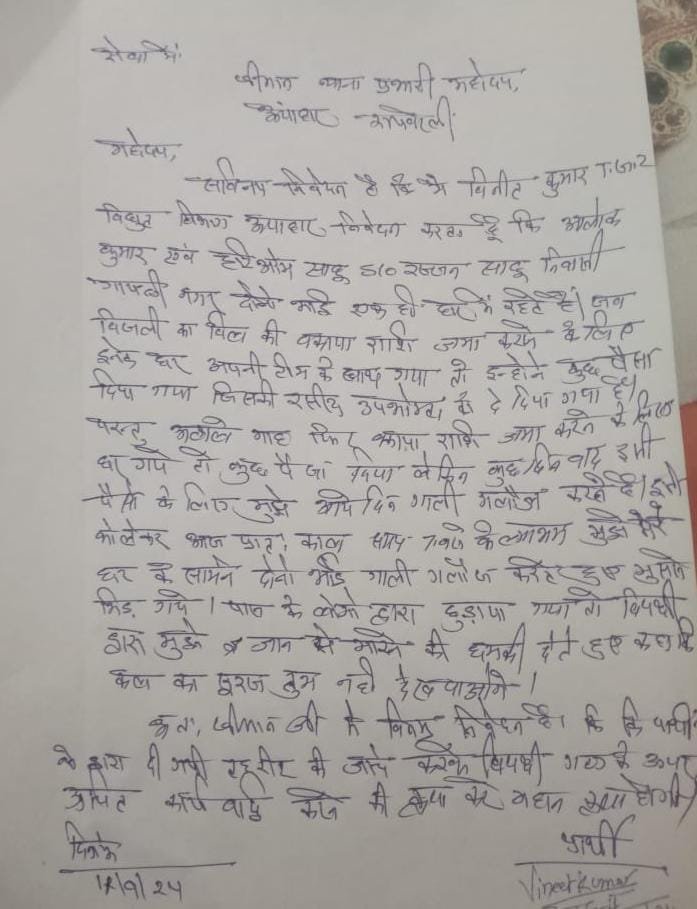 सेवा में,
श्रीमान थाना प्रभारी महोदय,
ऊंचाहार रायबरेली
महोदय,
सविनय निवेदन है कि मै विनीत कुमार T.G.2
विद्युत विभाग ऊंचाहार निवेदन करता हूँ कि आलोक
कुमार एवं हरिओम साहू S/o रज्जन साहू निवासी
नगर दोनो भाई एक ही घर में रहते है। जब
बिजली का बिल की बकाया राशि जमा करने के लिए
इनके घर अपनी टीम के साथ गया तो इन्होने कुछ पैसा
दिया गया जिसकी रसीद उपभोक्ता को दे दिया गया है।
परन्तु अगले माह फिर बकाया राशि जमा करने के लिए
घर गये तो कुछ पैसा दिया लेकिन कुछ दिन बाद इसी
पैसो के लिए मुझे आये दिन गाली गलौज करते है। इसी
को लेकर आज प्रात: काल समय बजे के लगभग मुझे मेरे
घर के सामने दोनो भाई गाली गलौज करते हुए मुझसे
भिड़ गये। पास के लोगो द्वारा छुड़ाया गया तो विपक्षी
द्वारा मुझे जान से मारने की धमकी देते हुए कहा कि
कल का सूरज तुम नही देख पाओगे।
अत: श्रीमान जी से विनम्र निवेदन है। कि कि प्रार्थी
के द्वारा दी गयी तहरीर की जांच करके विपक्षी गण के ऊपर
उचित कार्यवाही करने की कृपा करे महान कृपा होगी
दिनांक
प्रार्थी
Vineet Kumar